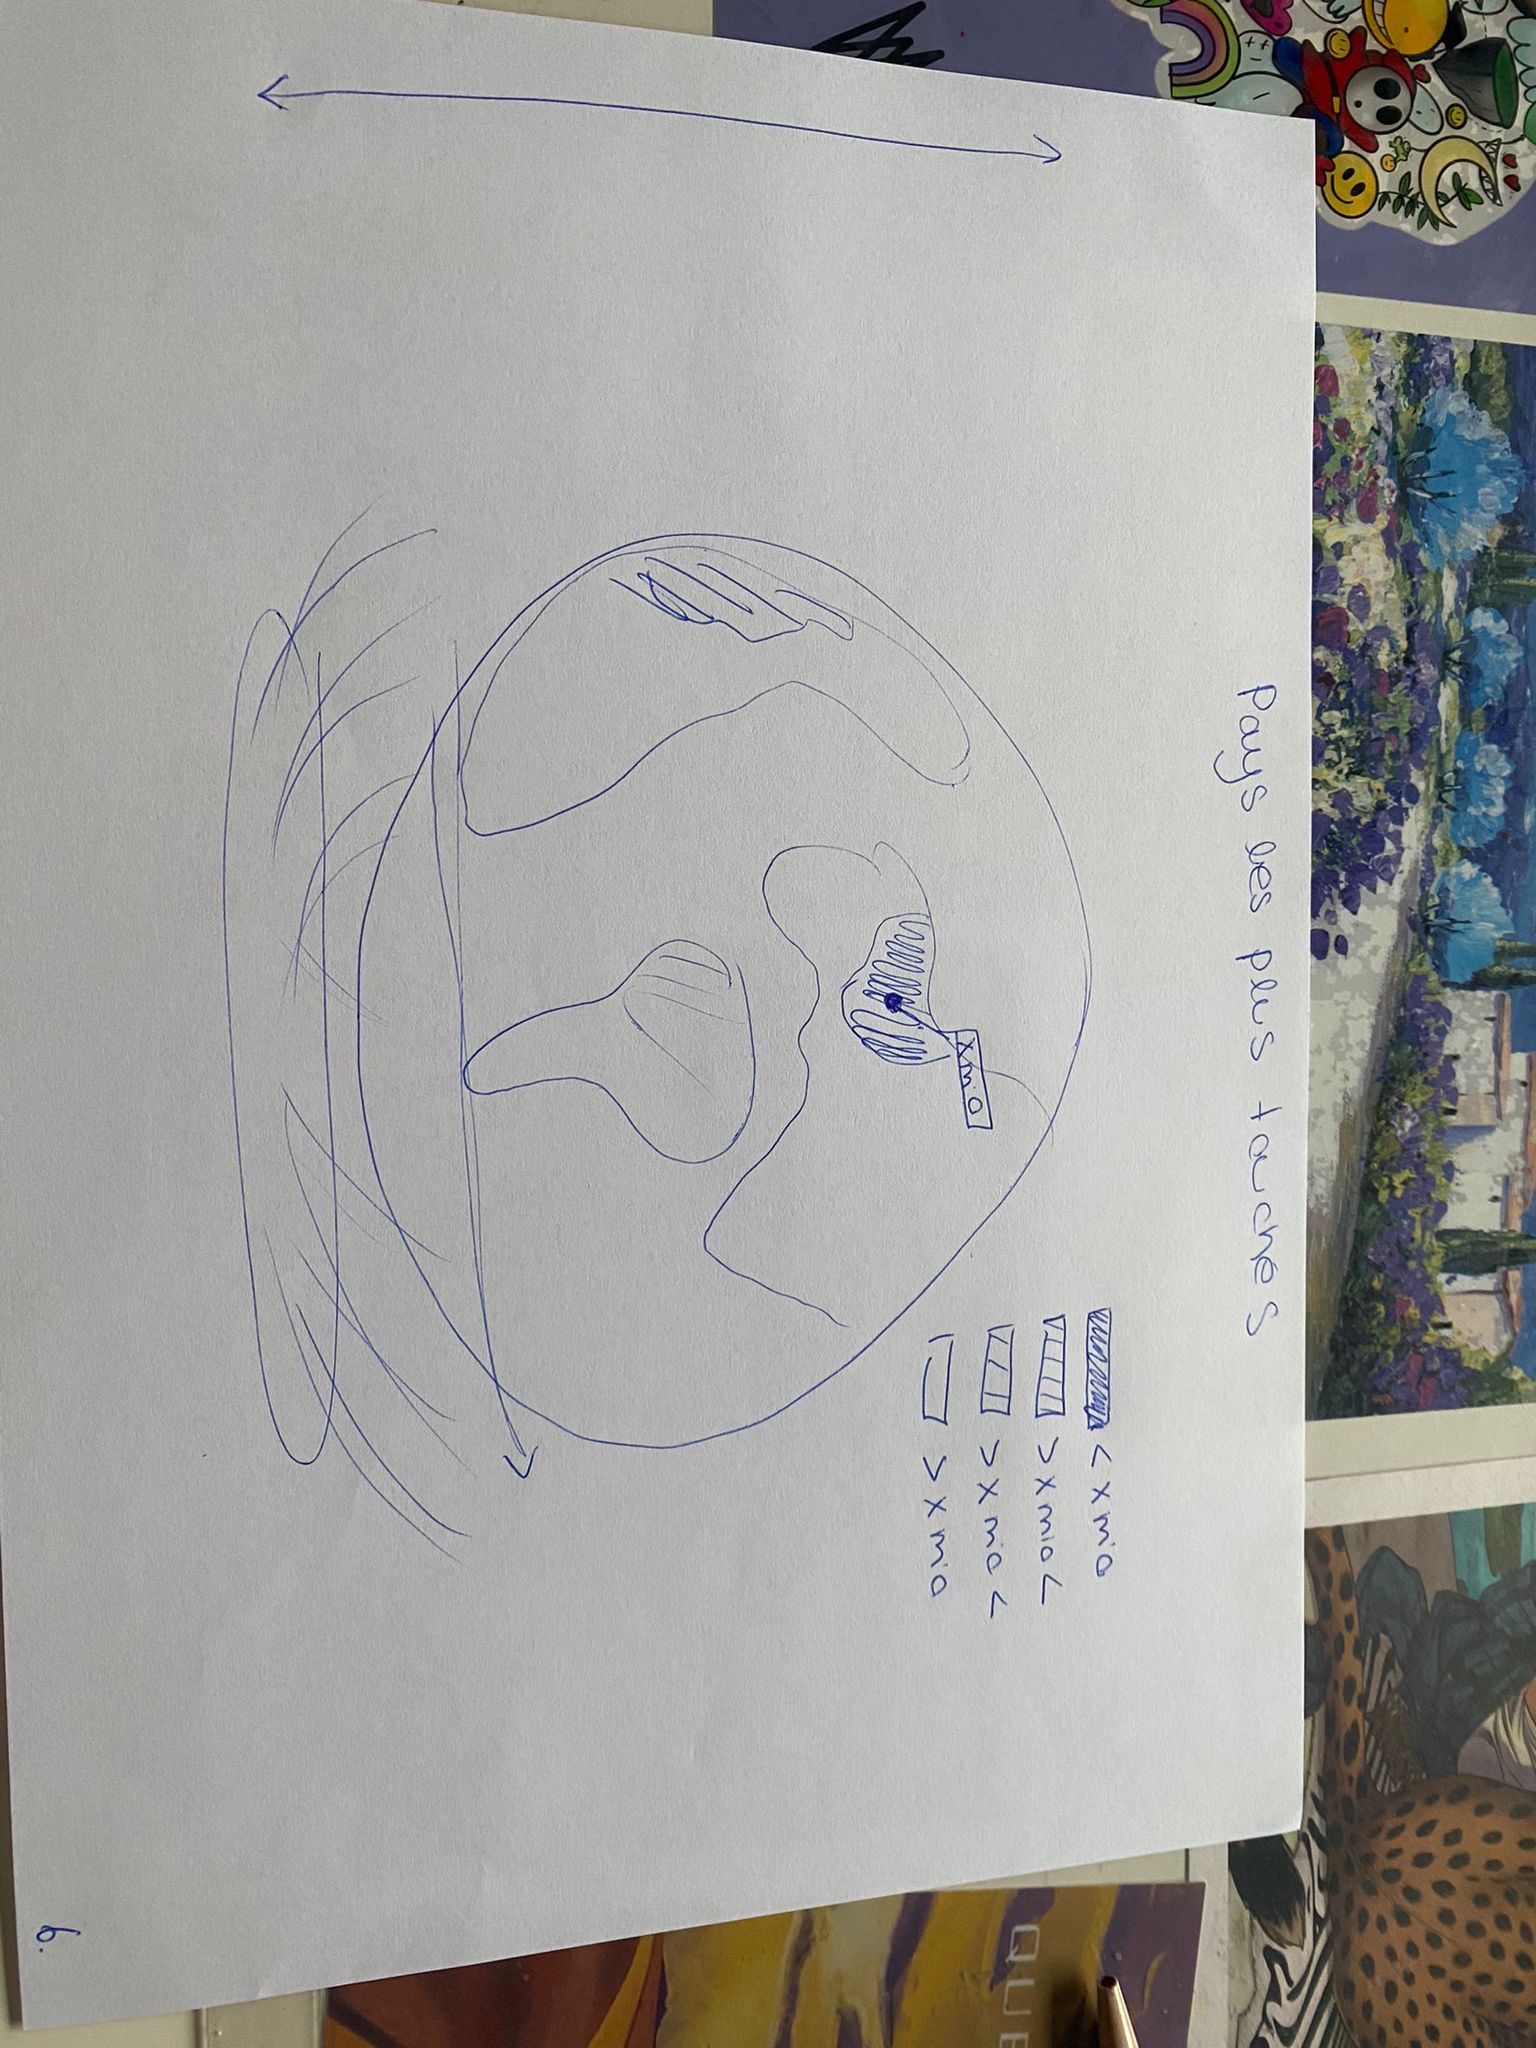 Pays les plus touchés
< x mio
> x mio <
> x mio <
> x mio
x mio
6.